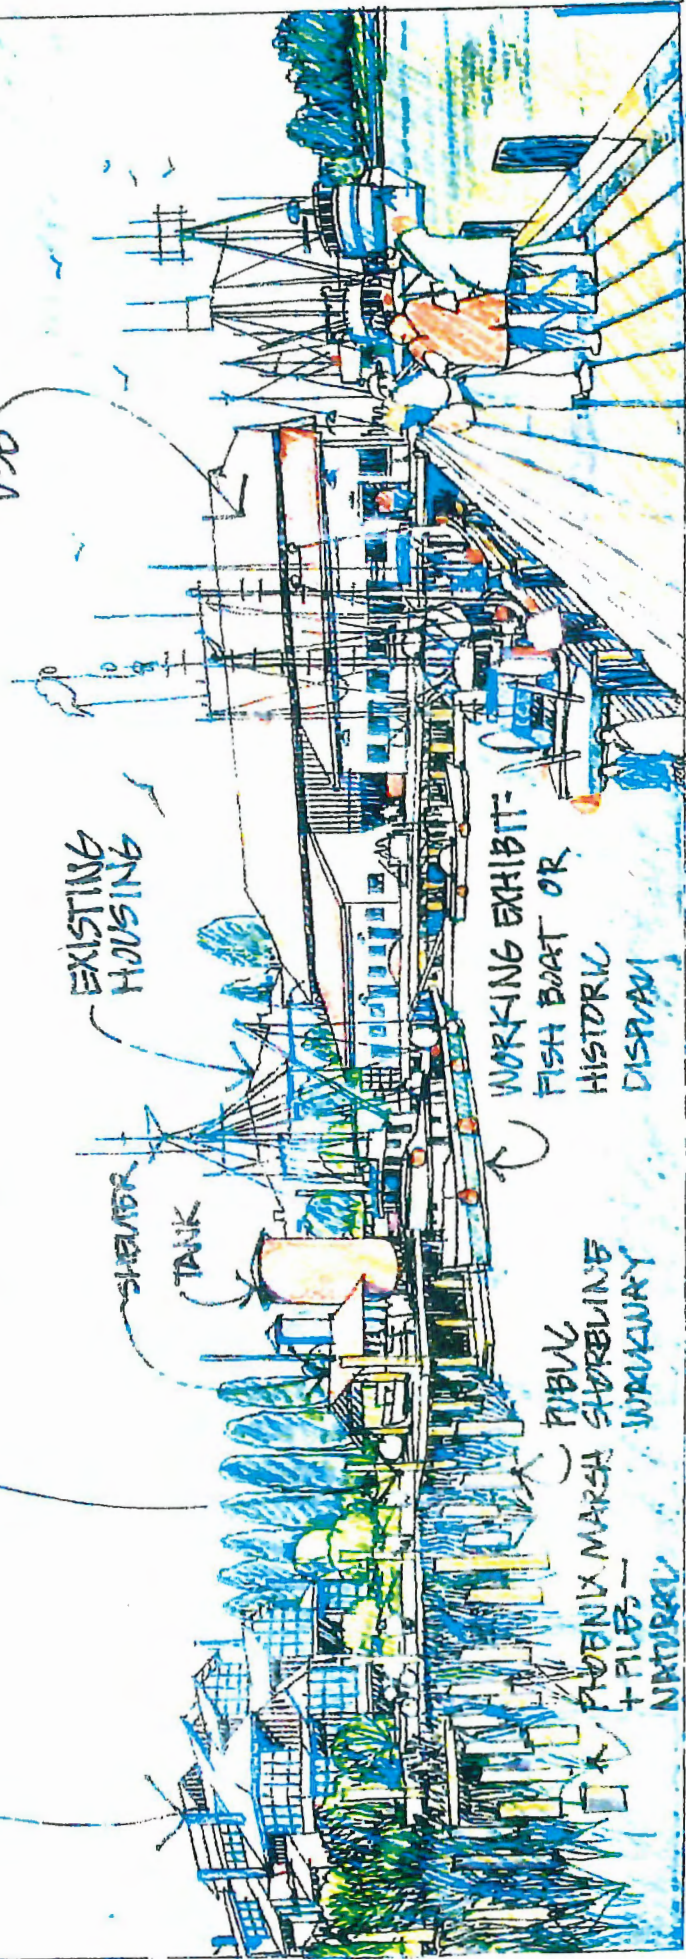 EXISTING
HOUSING
SHELTER
TANK
WORKING EXHIBIT-
FISH BOAT OR
HISTORIC
DISPLAY
PUBLIC
SHORELINE
WALKWAY
PHOENIX MARSH
+ PILES —
NATURAL